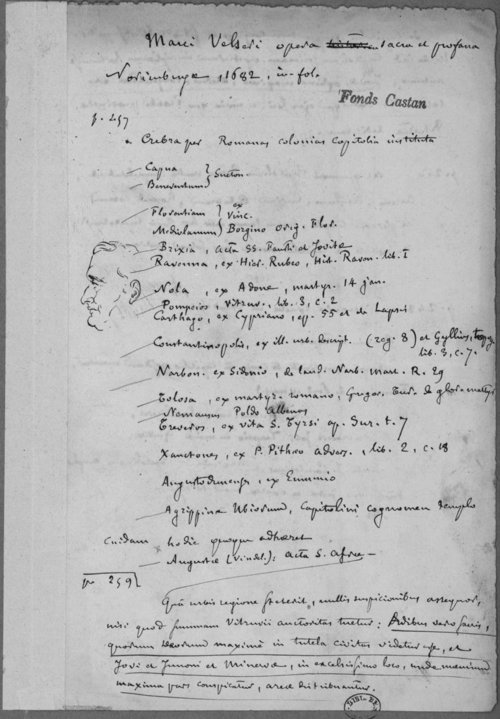 Marci Velseri opera sacra et profana
Norimbergæ 1682, in-fol.
Fonds Castan
p. 257
Crebra per Romanas colonias Capitolia instituta
— Capua } Sueton.
— Beneventum
— Florentiam } ex Vinc.
— Mediolanum } Borgino orig. Flor.
— Brixia, acta SS. Faustini et Jovitæ
Ravenna, ex Hier. Rubeo, Hist. Raven. lib. I
— Nola, ex Adone, martyr. 14 jan.
— Pompeios, Vitruv. lib. 3, c. 2
Carthago, ex Cypriano, ep. 55 et de Lapsis
— Constantinopolis, ex ill. urb. descript. (reg. 8) et Gyllius, topogr.
lib. 3, c. 7.
— Narbon. ex Sidonio, de laud. Narb. mart. R. 29
— Tolosa, ex martyr. romano, Gregor. Tur. de glor. martyr.
— Nemausus Poldo Albenas
— Treveros, ex vita S. Tyrsi ap. Sur. t. 7
Xanctones, ex P. Pithæo advers., lib. 2, c. 18
Augustodunensis, ex Eumenio
— Agrippinæ Ubiorum, Capitolini cognomen templo
cuidam hodie quoque adhæret
— Augustæ (Vindel.): acta S. Afræ —
p. 259
Quâ urbis regione stetit, multis suspicionibus assequor,
nisi quod summam Vitruvii auctoritas tuetur: Ædibus vero sacris,
quorum Deorum maximè in tutela civitas videtur esse, et
Jovi et Junoni et Minervæ, in excelsissimo loco, unde mœnium
maxima pars conspiciatur, areæ distribuantur.